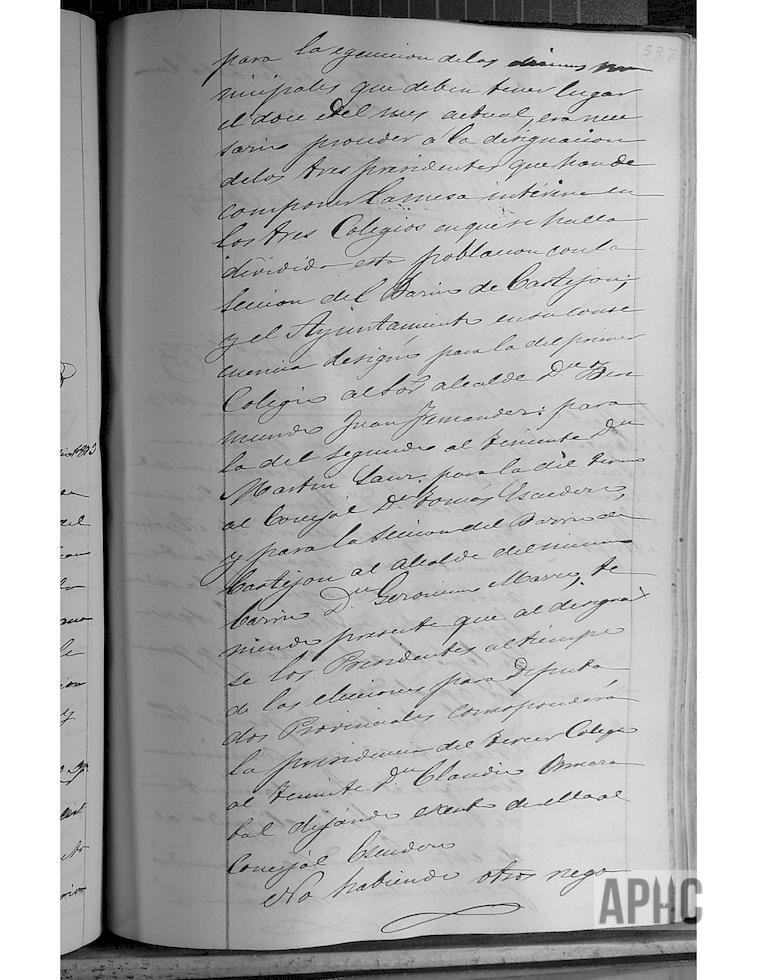 537
para la egecucion de las
nicipales que deben tener lugar
el doce del mes actual, era nece
sario proceder a la designacion
de los tres presidentes que han de
componer la mesa interina en
los tres Colegios en que se halla
dividida esta poblacion con la
seccion del Barrio de Castejon;
y el Ayuntamiento en su conse
cuencia designó para la del primer
Colegio al Sor alcalde Dn Ber
mundo Juan Fernandez: para
la del segundo al teniente Dn
Martin Sanz, para la del tercero
al Concejal Dn Tomás Escudero,
y para la seccion del Barrio de
Castejon al alcalde del mismo
barrio Dn Geronimo te
niendo presente que al designar
se los Presidentes al tiempo
de las elecciones para Diputa
dos Provinciales corresponderá
la presidencia del tercer Colegio
al teniente Dn Claudio
bal dejando exento de ella al
Concejal Escudero
No habiendo otros nego
APHC